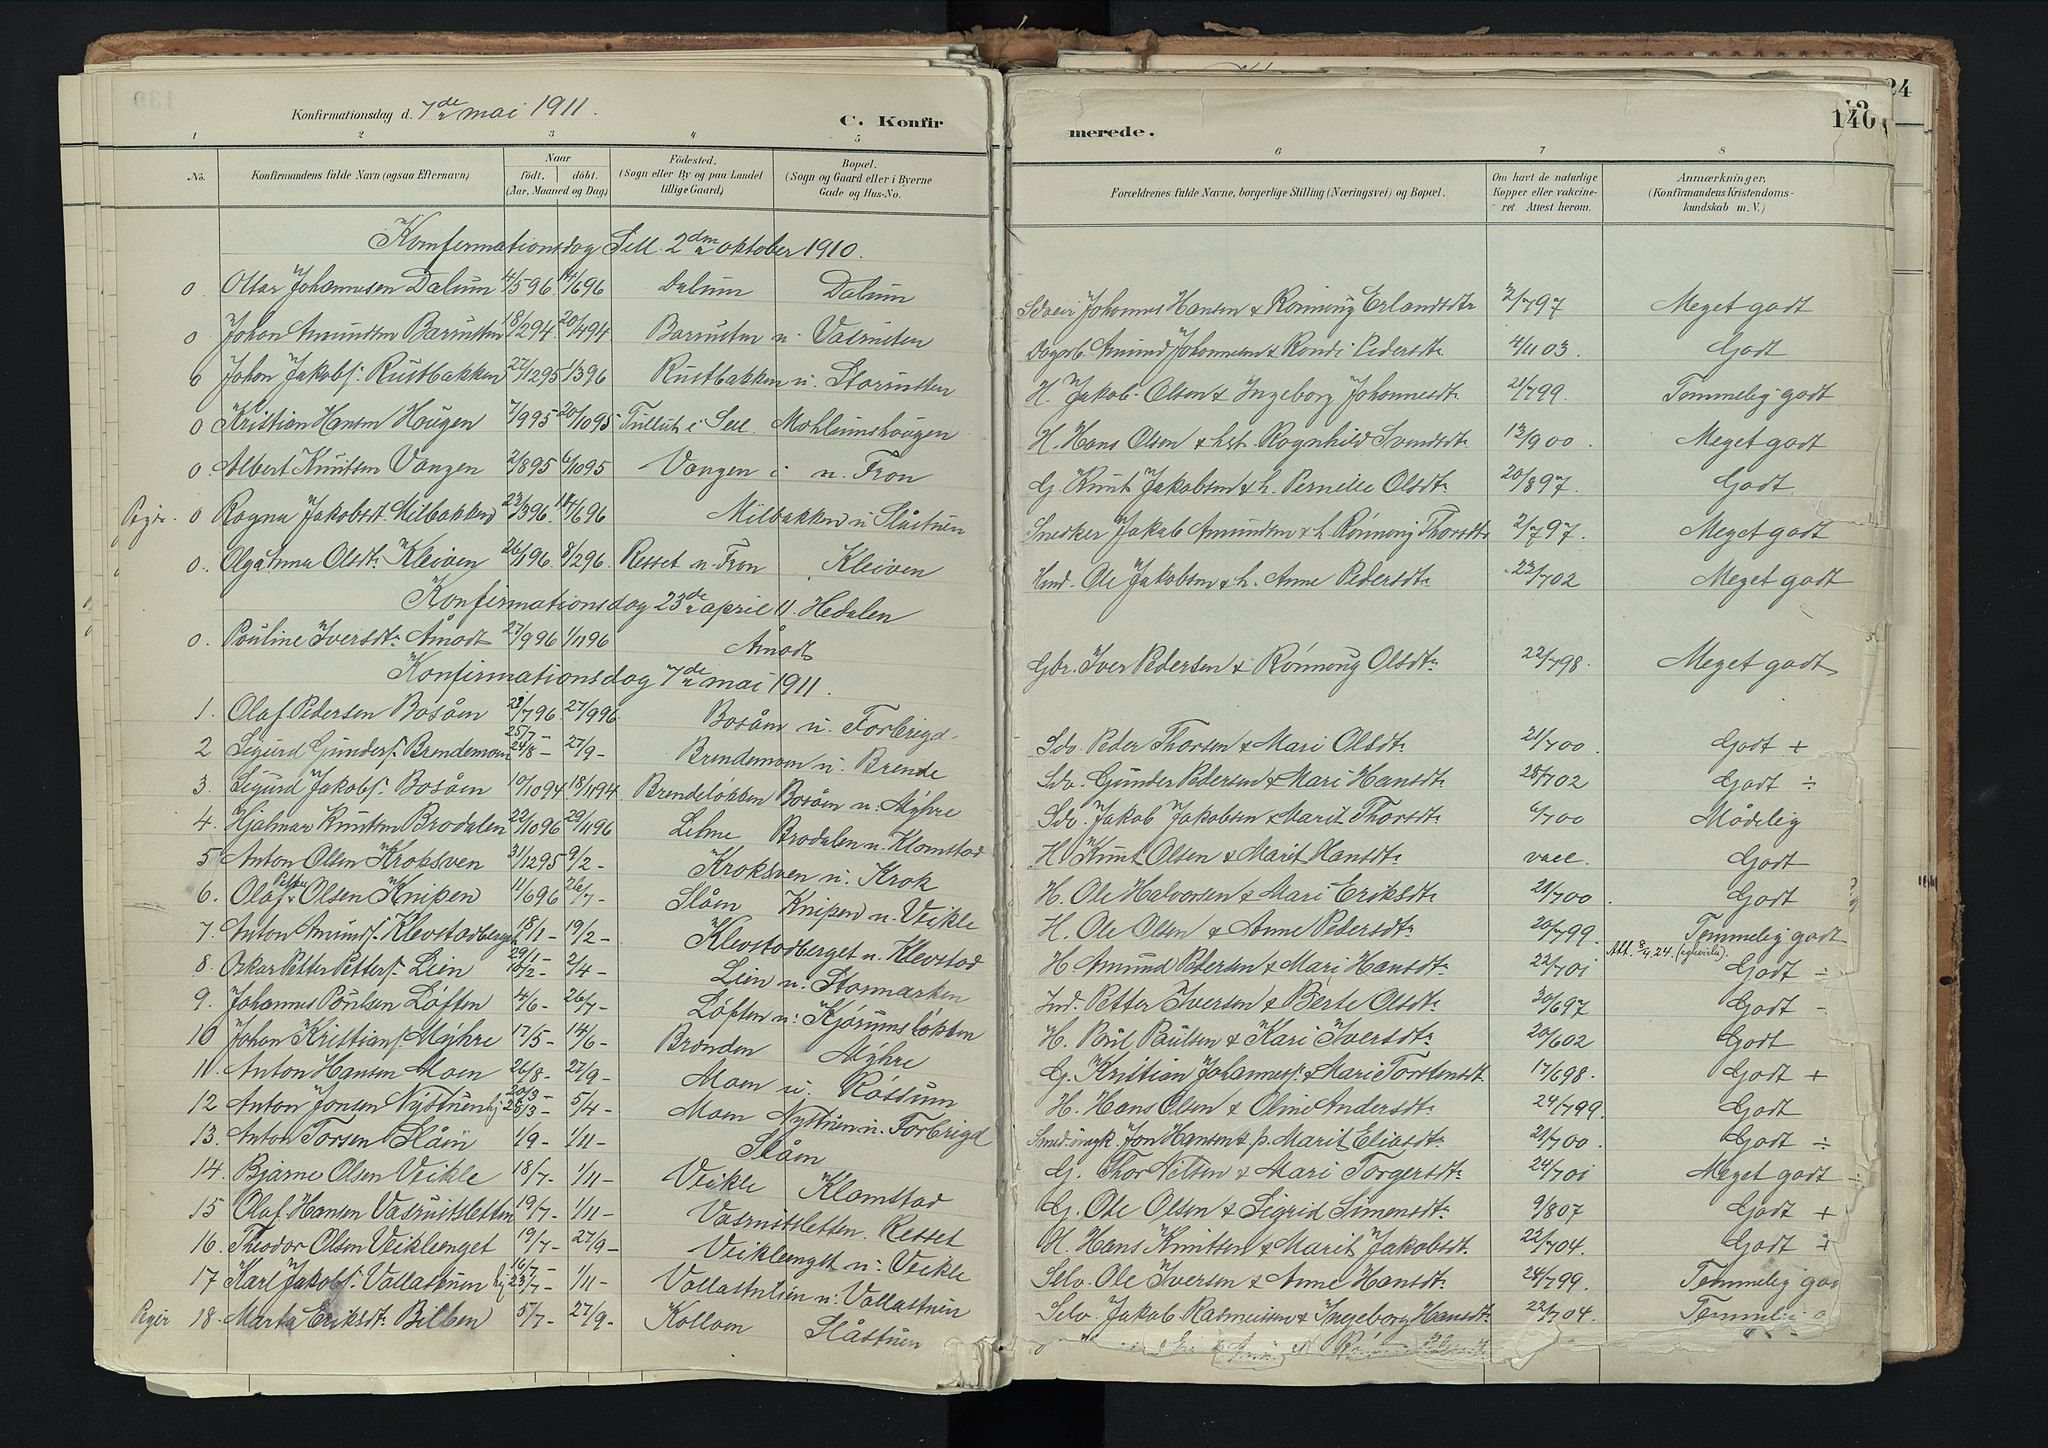 Konfirmationsdag d. 7de mai 1911.
C. Konfir
merede.
140
1 2 3 4 5
6 7 8
No.
Konfirmandens fulde Navn (ogsaa Efternavn)
Naar
födt. döbt.
(Aar, Maaned og Dag)
Födested.
(Sogn eller By og paa Landet
tillige Gaard)
Bopæl.
(Sogn og Gaard eller i Byerne
Gade og Hus-No.
Forældrenes fulde Navne, borgerlige Stilling (Næringsvei) og Bopæl.
Om havt de naturlige
Kopper eller vakcine-
ret. Attest herom.
Anmærkninger.
(Konfirmandens Kristendoms-
kundskab m. V.)
Konfirmationsdag Sell 2den oktober 1910.
0. Ottar Johannesen Dalum 4/5 96 14/6 96 Dalum Dalum Johannes Hansen & Rönnoug Erlandsdtr 2/7 97 Meget godt
0 Johan Amundsen Barrusten 18/2 94 20/4 94 Barrusten u. Vasrusten Dagarb. Amund Johannesen & Rondi Pedersdtr 4/11 03. Godt
0 Johan Jakobs. Rustbakken 27/12 95 1/3 96 Rustbakken u. Storrusten H. Jakob Olsen & Ingeborg Johannesdtr 21/7 99. Temmelig godt
0 Kristian Hansen Haugen 7/9 95 20/10 95 i Sell. H. Hans Olsen & Ragnhild Svendsdtr 13/9 00. Meget godt
0 Albert Knutsen Vangen 2/8 95 6/10 95 Vangen i n. Fron G. Knut Jakobsen & h. Pernille Olsdtr 20/8 97. Godt
0 Ragna Jakobsdt. Milbakken 23/3 96. 14/6 96 Milbakken u Slåstuen Snedker Jakob Amundsen & h. Rönnoug Thorsdtr 2/7 97. Meget godt
0. Olga Anna Olsdt. Kleiven 26/1 96 8/2 96. Resset n. Fron Kleiven Ole Jakobsen & h. Anne Pedersdtr 22/7 02 Meget godt
Konfirmationsdag 23de april 11. Hedalen
0. Pauline Iversdt. Åmodt 27/9 96 1/11 96 Åmodt Gbr. Iver Pedersen & Rönnoug Olsdtr 22/7 98. Meget godt
Konfirmationsdag 7de mai 1911.
1. Olaf Pedersen Bosåen 27/9 96 Bosåen u. Forbrigd. Sdv. Peder Thorsen & Mari Olsdtr 21/7 00. Godt +
2 Sigurd Gunders. Brendemoen 25/7 - 24/8 - 27/9 - Brendemoen u. Brende Sdv. Gunder Pedersen & Mari Hansdtr 28/7 02 Godt ÷
3. Sigurd Jakobs. Bosåen 10/10 94 18/11 94. Brendeløkken Bosåen u. Myhre Sdv. Jakob Jakobsen & Marit Thorsdtr 6/7 00 Mådelig
4. Hjalmar Knutsen Brodalen 22/10 96 29/11 96 Brodalen u. Klomstad H. Knut Olsen & Marit Hansdtr vacc. Godt
5 Anton Olsen Kroksven 31/12 95 9/2 - Kroksven u. Krok H. Ole Halvorsen & Mari Eriksdtr 21/7 00. Godt
6. Olaf Petter Olsen Knipen 11/6 96 26/7 - Slåen Knipen u. Veikle H. Ole Olsen & Anne Pedersdtr 20/7 99. Temmelig godt
7. Anton Amunds. Klevstadberget 18/1 - 19/2 - Klevstadberget u. Klevstad H Amund Pedersen & Mari Hansdtr 22/7 01 Att. 8/4 24. Godt ÷
8. Oskar Petter Petters. Lien 29/1 - 10/2 - 2/4 - Lien u. Stormarken Ind. Petter Iversen & Berte Olsdtr 30/6 97 Godt -
9. Johannes Poulsen Løften 4/6 - 26/7 - Løften u. Kjørumsløkken H. Paul Paulsen & Kari Iversdtr 20/6 02 Godt
10 Johan Kristians. Myhre 17/5 - 14/6 - Brenden Myhre G. Kristian Johannes. & Mari Torstensdt 17/6 98. Godt +
11. Anton Hansen Moen 26/8 - 27/9 - Moen u. Røssum H. Hans Olsen & Oline Andersdtr 24/7 99. Godt
12 Anton Jonsen Nystuen 20/3 - 25/3 - 5/4 - Moen Nystuen u. Forbrigd Jon Hansen & p. Marit Eliasdtr 21/7 00. Godt ÷
13. Anton Torsen Slåen 1/9 - 1/11 - Slåen G. Thor Nilsen & Mari Torgersdtr 24/7 01 Meget godt ÷
14. Bjarne Olsen Veikle 18/7 - 1/11 - Veikle Klomstad G. Ole Olsen & Sigrid Simensdtr 9/8 07 Godt +
15 Olaf Hansen Vasrustsletten 19/7 - 1/11 - Vasrustsletten. Resset H. Hans Knutsen & Marit Jakobsdt. 22/7 04. Godt ÷
16. Theodor Olsen Veikleenget 19/7 - 27/9 - Veikleenget u. Veikle Selv. Ole Iversen & Anne Hansdtr 24/7 99. Temmelig go
17 Karl Jakobs. Vollastuen 16/7 - 23/7 - 1/11 - Vollastulien u. Vollastuen Selv. Jakob Rasmussen & Ingeborg Hansdtr 22/7 04. Temmelig
18. Marta Eriksdt. Billen 5/7 - 27/9 - Kollom Slåstuen